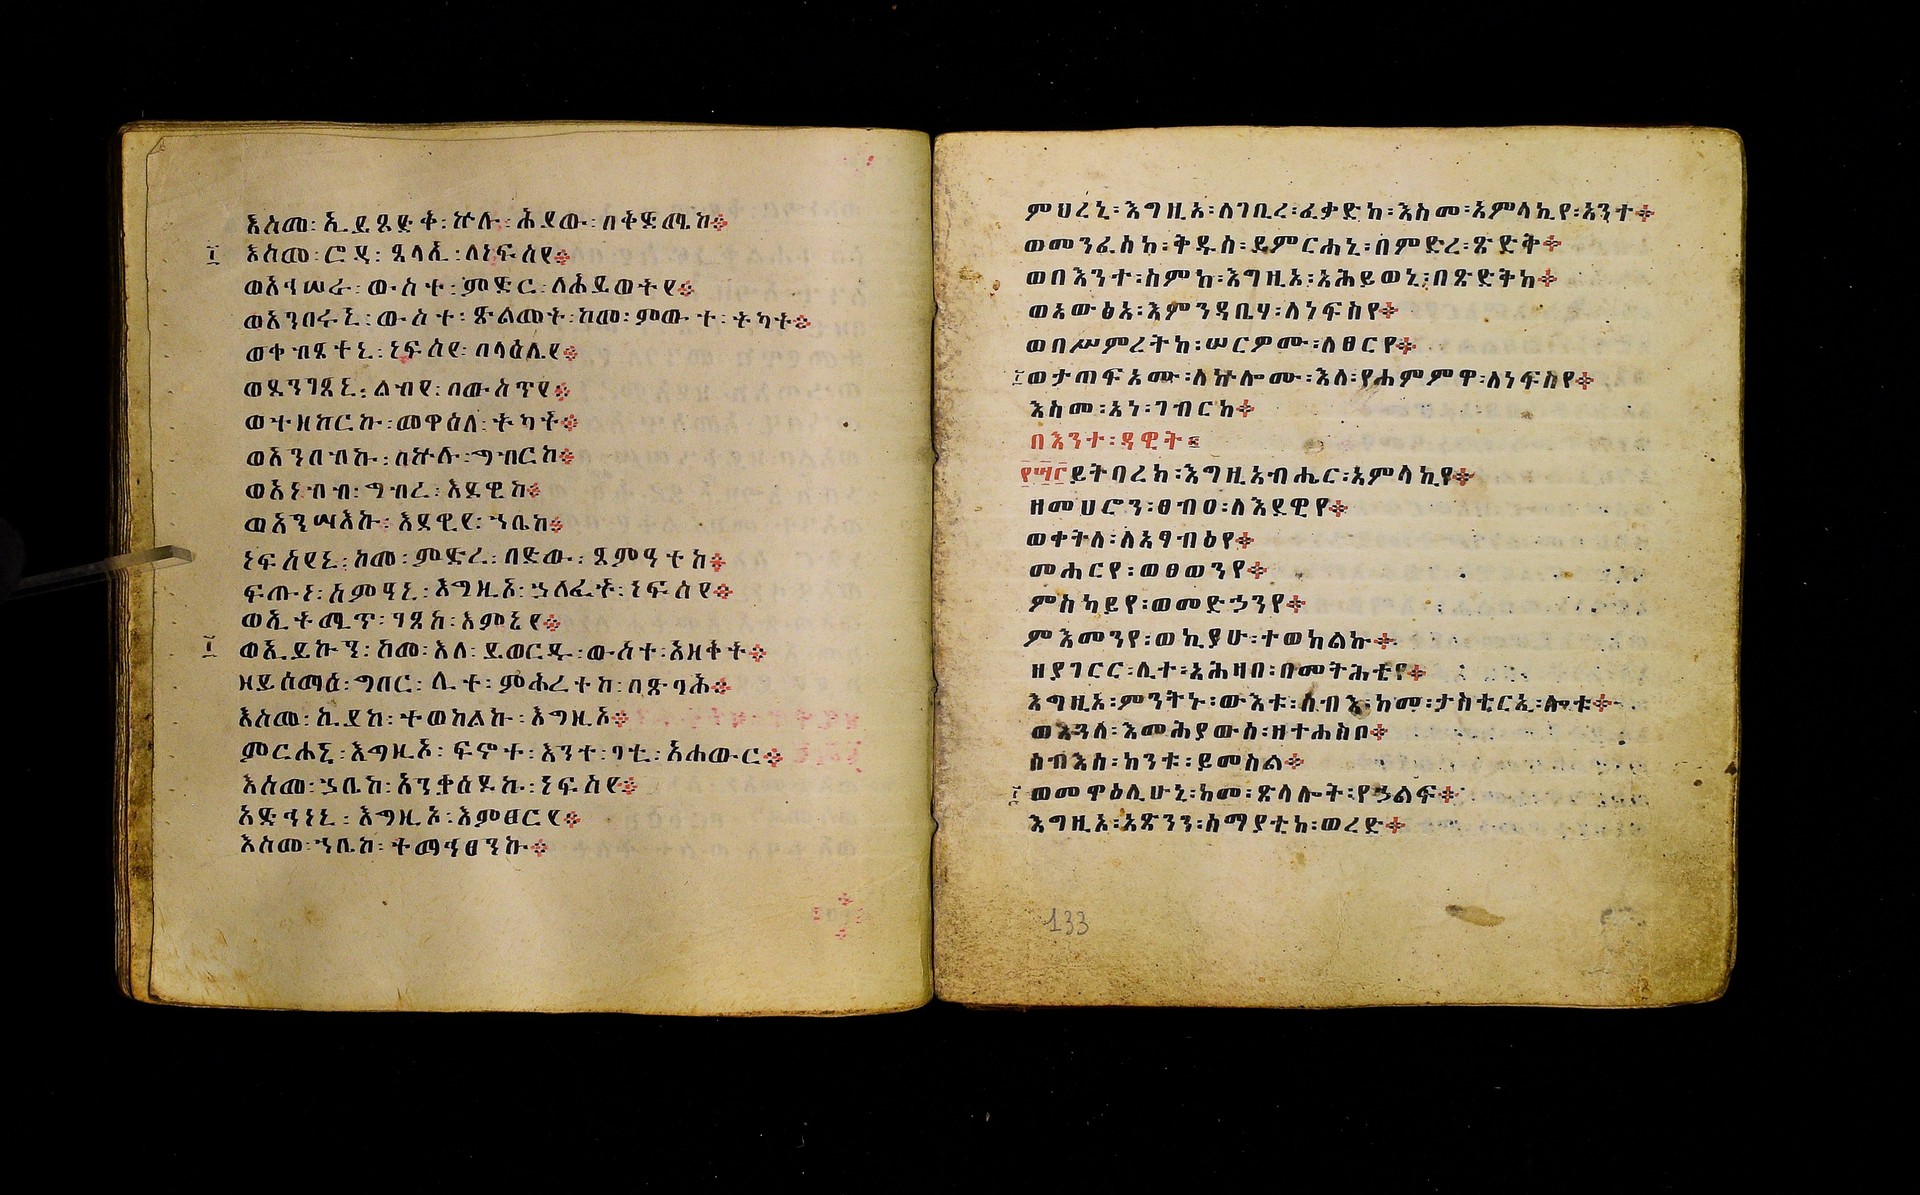 እስመ፡ ኢይጸድቅ፡ ኵሉ፡ ሕያው፡ በቅድሜከ፨
፲ እስመ፡ ሮዳ፡ ጸላኢ፡ ለነፍስየ፨
ወአኅሠራ፡ ውስተ፡ ምድር፡ ለሕይወትየ፨
ወአንበሩኒ፡ ውስተ፡ ጽልመት፡ ከመ፡ ምውተ፡ ትካት፨
ወቀብጸተኒ፡ ነፍስየ፡ በላዕሌየ፨
ወደንገጸኒ፡ ልብየ፡ በውስጥየ፨
ወተዘከርኩ፡ መዋዕለ፡ ትካት፨
ወአንበብኩ፡ በኵሉ፡ ግብርከ፨
ወአነብብ፡ ግብረ፡ እደዊከ፨
ወአንሣእኩ፡ እደዊየ፡ ኀቤከ፨
ነፍስየኒ፡ ከመ፡ ምድረ፡ በድው፡ ጸምዓተከ፨
ፍጡነ፡ ስምዓኒ፡ እግዚኦ፡ ኃለፈት፡ ነፍስየ፨
ወኢትሚጥ፡ ገጸከ፡ እምኔየ፨
፲ ወኢይኩን፡ ከመ፡ እለ፡ ይወርዱ፡ ውስተ፡ አዘቅት፨
ዘይሰማዕ፡ ግበር፡ ሊተ፡ ምሕረተከ፡ በጽባሕ፨
እስመ፡ ኪያከ፡ ተወከልኩ፡ እግዚኦ፨
ምርሐኒ፡ እግዚኦ፡ ፍኖተ፡ እንተ፡ ባቲ፡ አሐውር፨
እስመ፡ ኃቤከ፡ አንቃዕደኩ፡ ነፍስየ፨
አድኅነኒ፡ እግዚኦ፡ እምፀርየ፨
እስመ፡ ኀቤከ፡ ተማኅፀንኩ፨
ምህረኒ፡እግዚኦ፡ለገቢረ፡ፈቃድከ፡እስመ፡አምላኪየ፡አንተ፨
ወመንፈስከ፡ቅዱስ፡ይምርሐኒ፡በምድረ፡ጽድቅ፨
ወበእንተ፡ስምከ፡እግዚኦ፡አሕይወኒ፡በጽድቅከ፨
ወአውፅአ፡እምንዳቤሃ፡ለነፍስየ፨
ወበሥምረትከ፡ሠርዎሙ፡ለፀርየ፨
፲ ወታጠፍአሙ፡ለኵሎሙ፡እለ፡የሐምምዋ፡ለነፍስየ፨
እስመ፡አነ፡ገብርከ፨
በእንተ፡ዳዊት፤
፻፵፫ ይትባረክ፡እግዚአብሔር፡አምላኪየ፨
ዘመሀሮን፡ፀብዐ፡ለእደዊየ፨
ወቀትለ፡ለአፃብዕየ፨
መሐርየ፡ወፀወንየ፨
ምስካይየ፡ወመድኃንየ፨
ምእመንየ፡ወኪያሁ፡ተወከልኩ፨
ዘያገርር፡ሊተ፡አሕዛበ፡በመትሕቴየ፨
እግዚኦ፡ምንትኑ፡ውእቱ፡ሰብእ፡ከመ፡ታስቲርኢ፡ሎቱ፨
ወእጓለ፡እመሕያውስ፡ዘተሐስቦ፨
ሰብእሰ፡ከንቱ፡ይመስል፨
፲ ወመዋዕሊሁኒ፡ከመ፡ጽላሎት፡የኃልፍ፨
እግዚኦ፡አጽንን፡ሰማያቲከ፡ወረድ፨
133